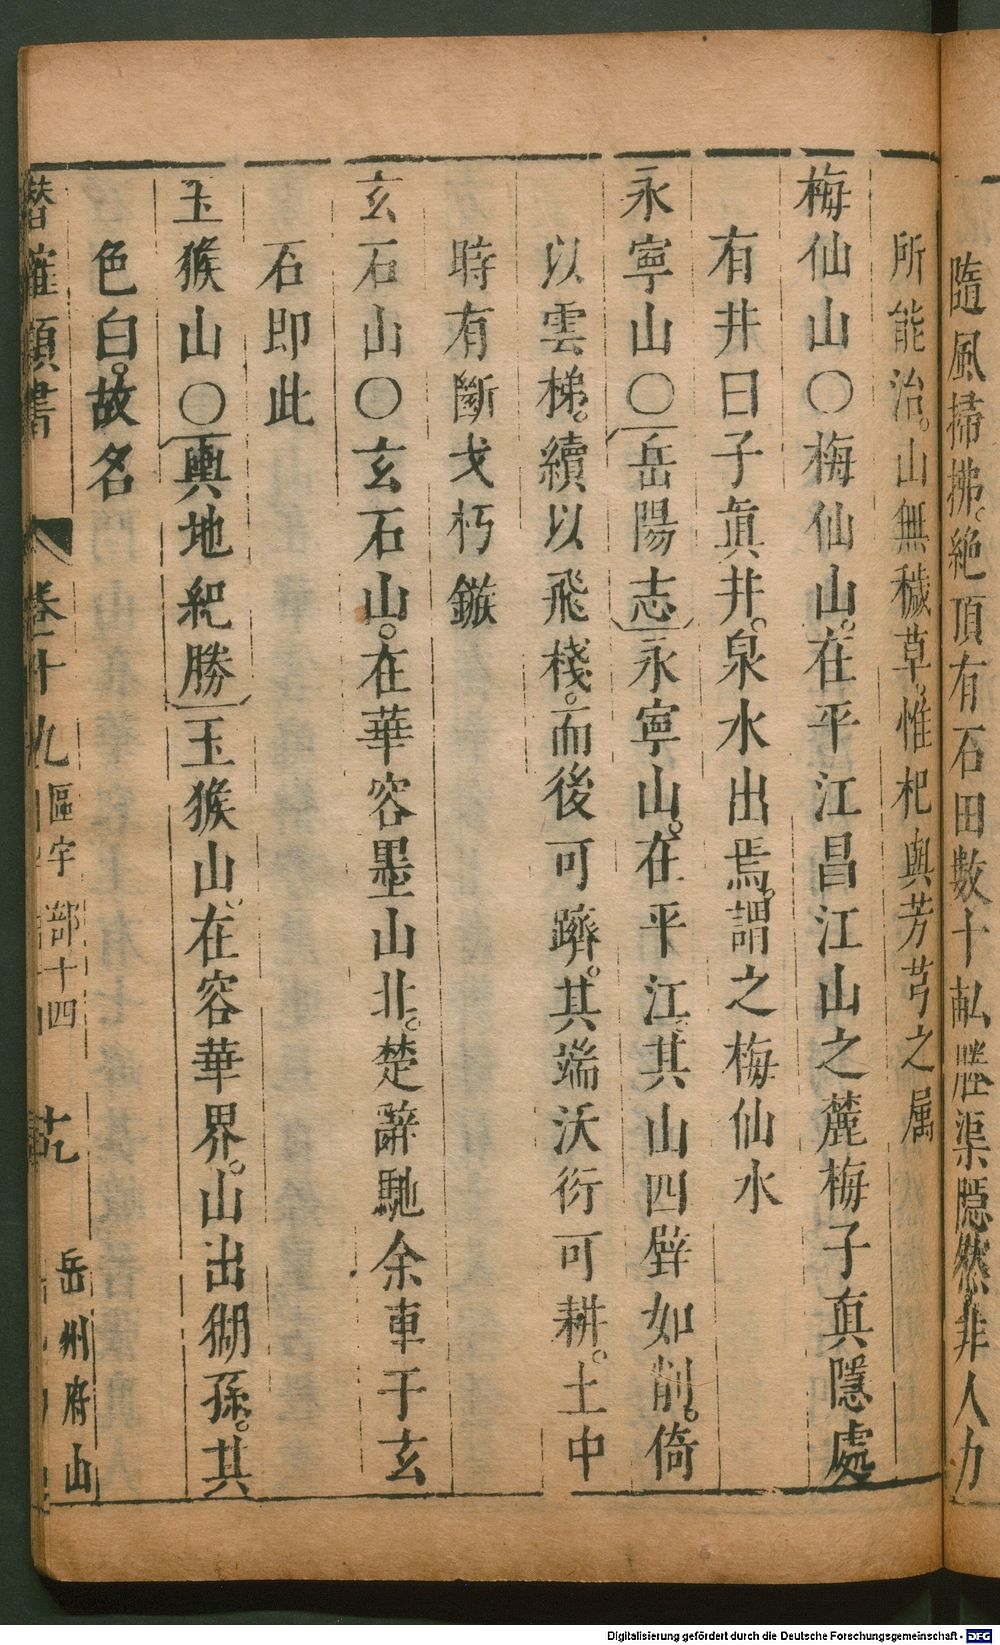 隨風掃拂。絶頂有石田數十畝塍渠隱然。非人力
所能治。山無穢草。惟杞與芳芎之属
梅仙山〇梅仙山。在平江昌江山之麓梅子真隱處
有井曰子眞井。泉水出焉。謂之梅仙水
永寧山〇岳陽志永寧山。在平江。其山四壁如削。倚
以雲梯。續以飛棧。而後可躋。其端沃衍可耕。土中
時有斷戈朽鏃
玄石山〇玄石山。在華容墨山北。楚辭馳余車于玄
石即此
玉猴山〇輿地紀勝玉猴山。在容華界。山出猢孫。其
色白。故名
潛確類書 卷二十九 區宇部十四 岳州府山
Digitalisierung gefördert durch die Deutsche Forschungsgemeinschaft - DFG